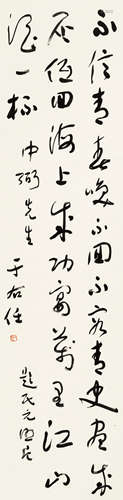 不信青春喚不回不容青史盡成
灰低回海上成功宴萬里江山
酒一杯 中弼先生 于右任
題民元照片